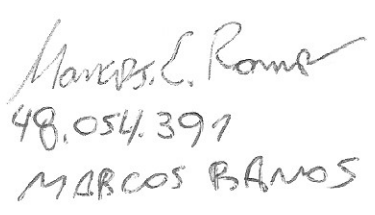 Marcos. E. Ramos
48.054.391
MARCOS RAMOS